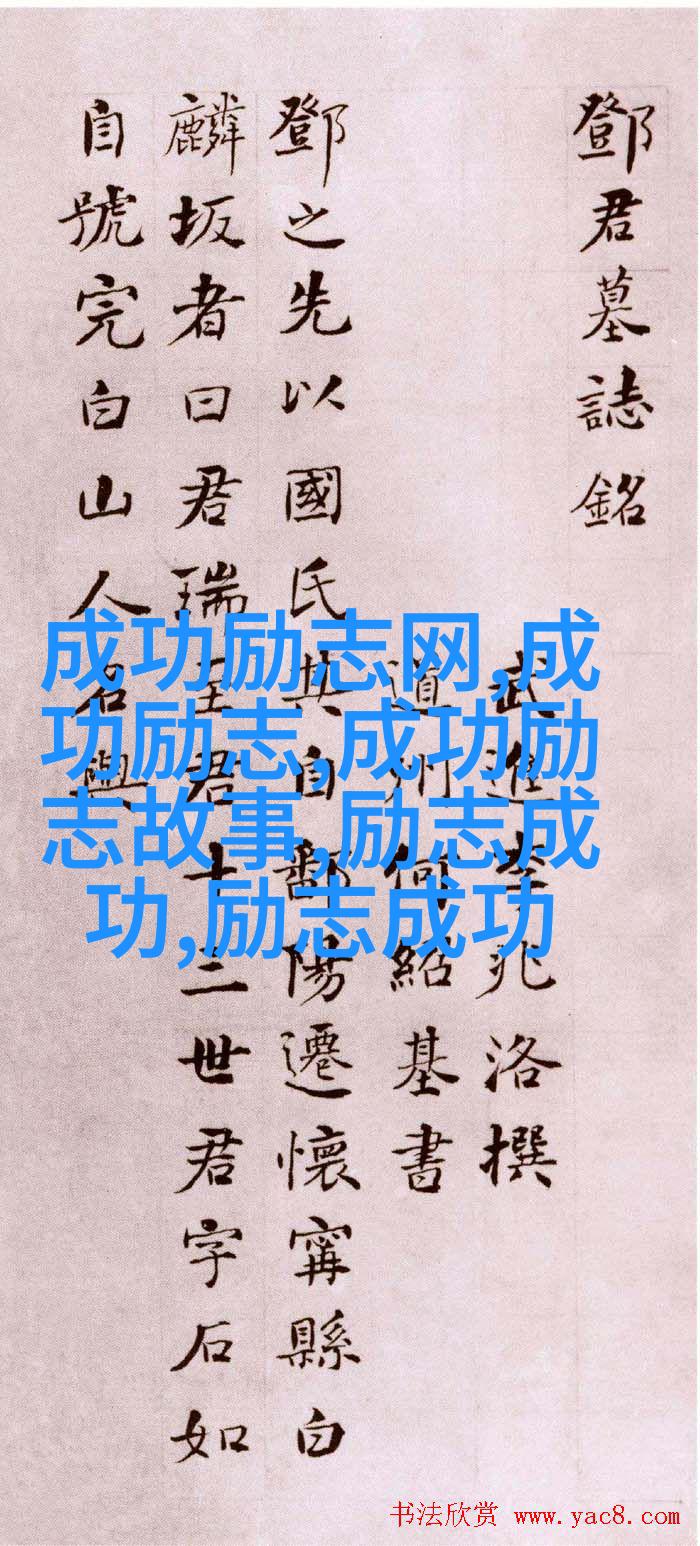 鄧君墓誌銘
武進李兆洛撰
道州何紹基書
鄧之先以國氏其自鄱陽遷懷寧縣白
麟坂者曰君瑞至君十三世君字石如
自號完白山人名與
成功励志网,成
功励志,成功励
志故事,励志成
功,励志成功
书法欣赏 www.yac8.com